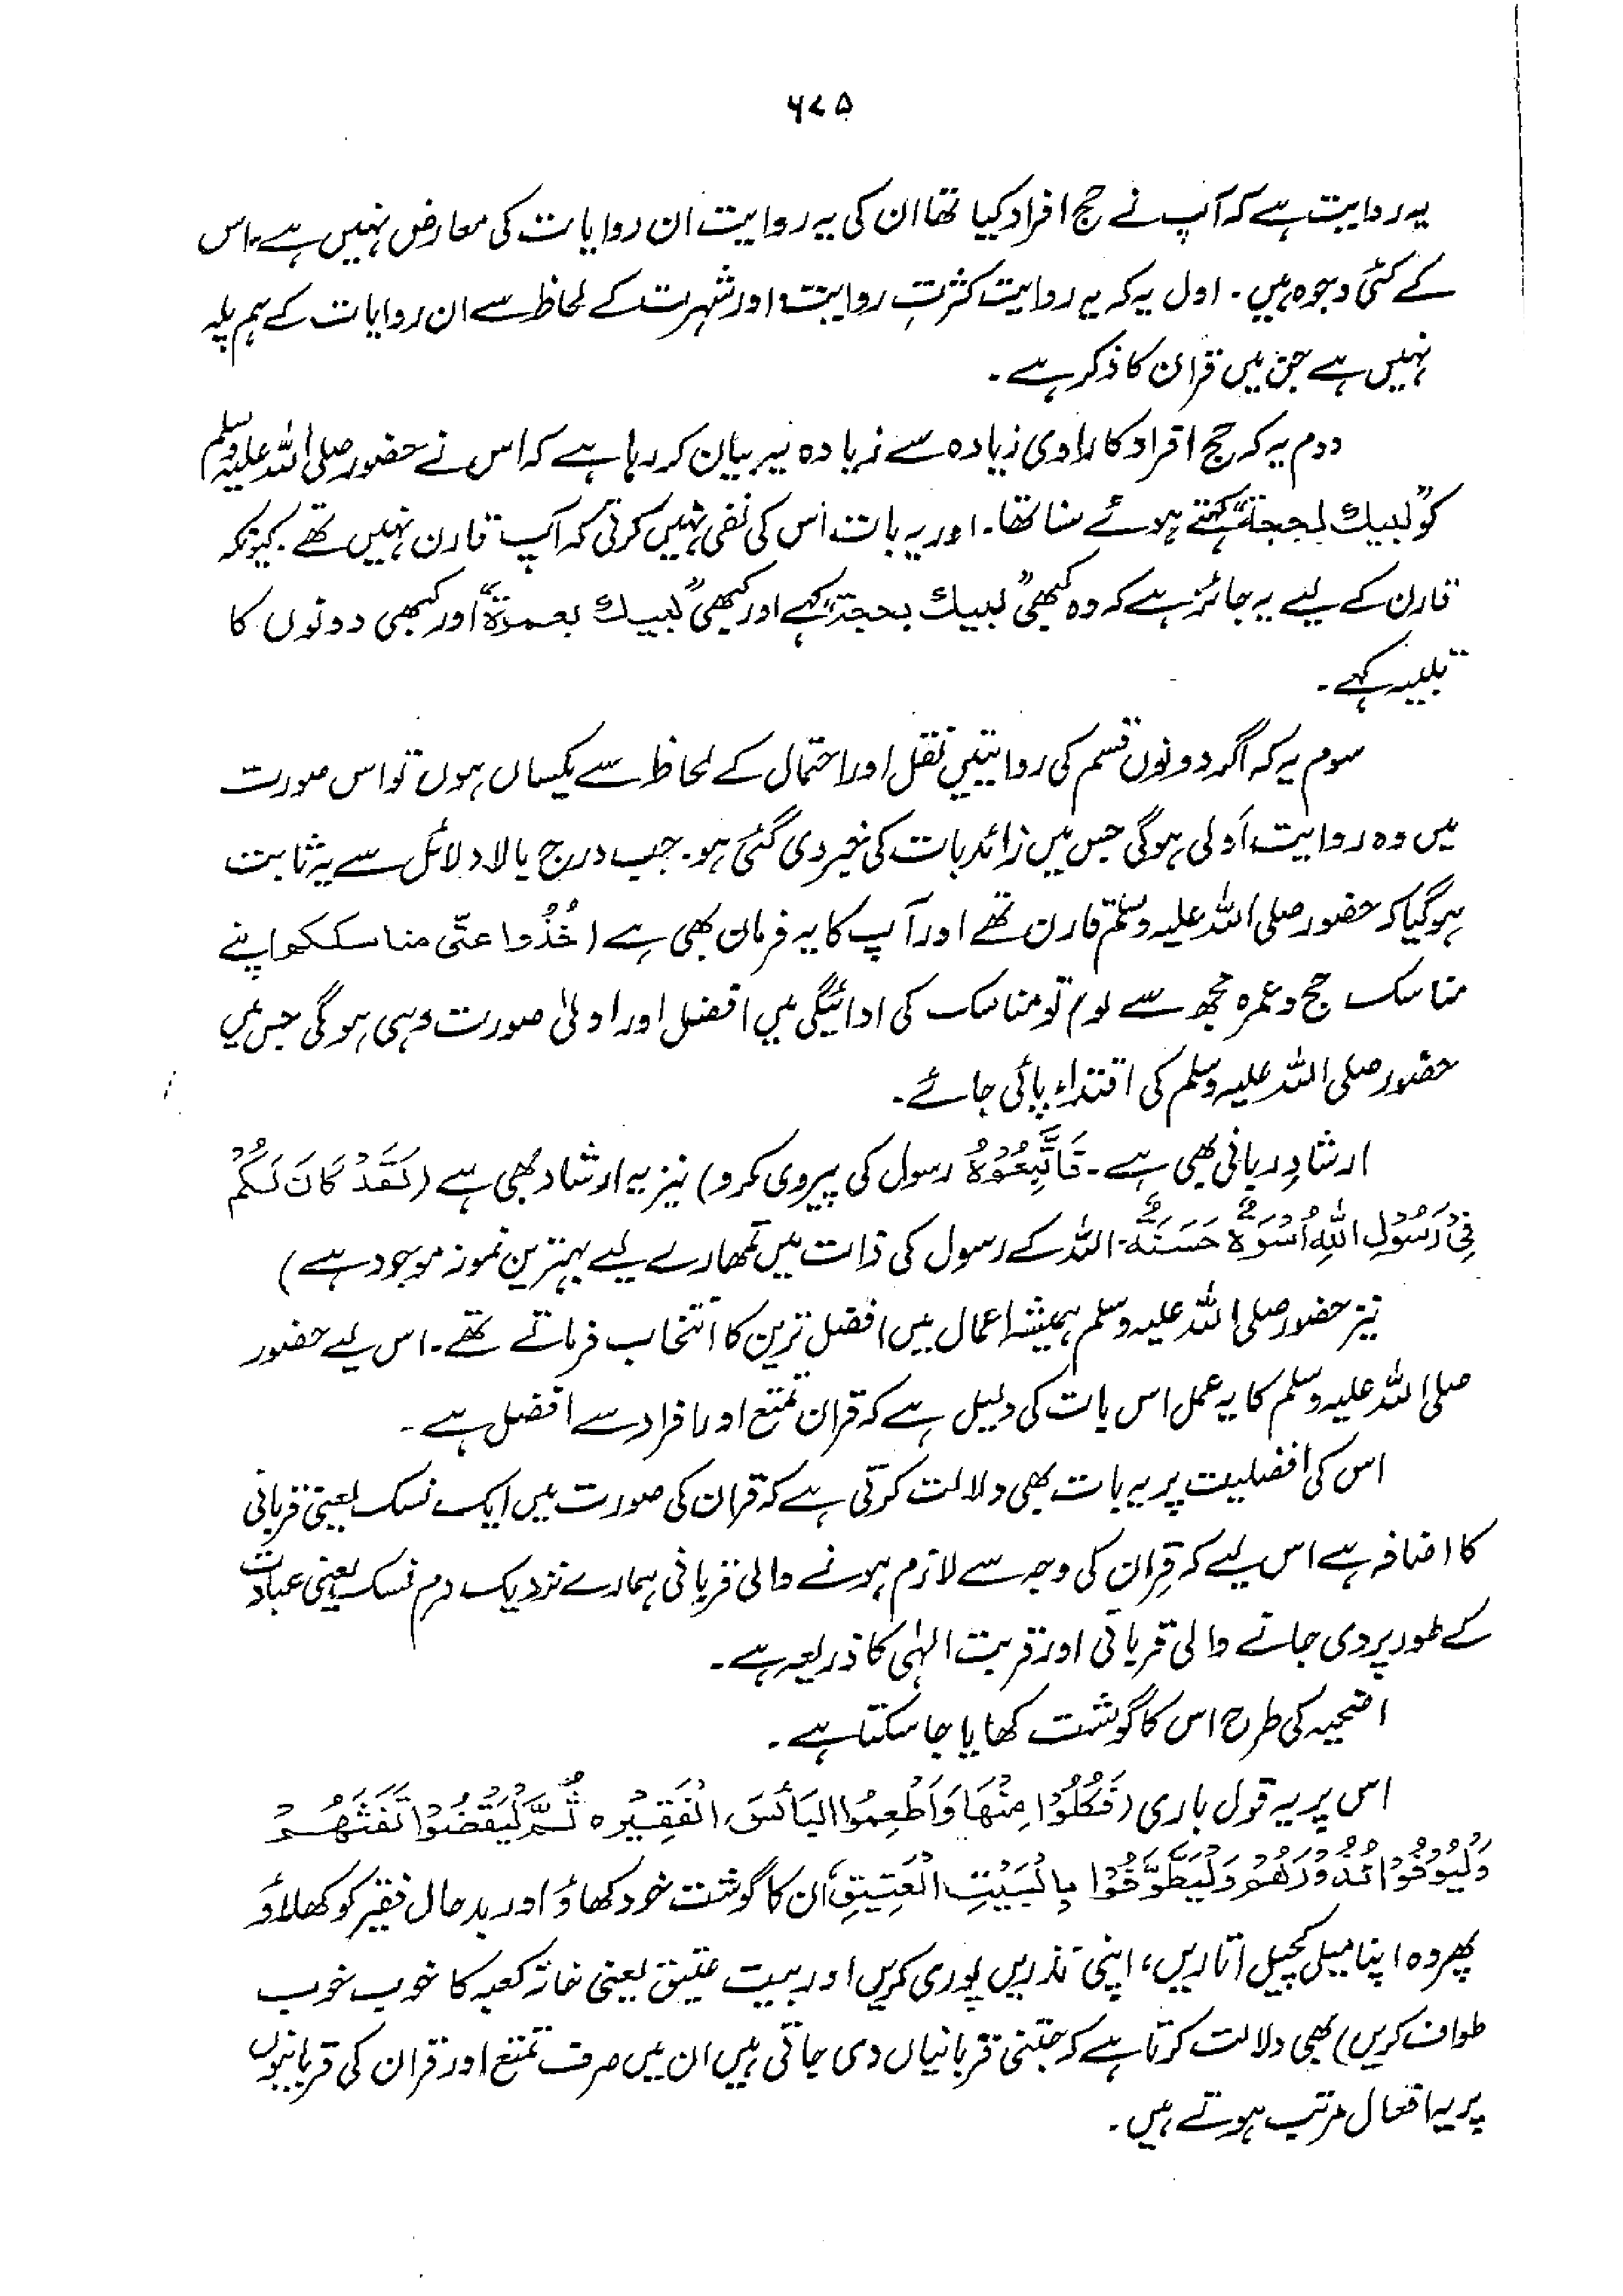 ۶۷۵
یہ روایت ہے کہ آپ نے حج افراد کیا تھا ان کی یہ روایت ان روایات کی معارض نہیں ہے۔ اس
کے کئی وجوہ ہیں۔ اول یہ کہ یہ روایت کثرتِ روایت اور شہرت کے لحاظ سے ان روایات کے ہم پلہ
نہیں ہے جن میں قران کا ذکر ہے۔
دوم یہ کہ حج افراد کا راوی زیادہ سے زیادہ یہ بیان کر رہا ہے کہ اس نے حضور صلی اللہ علیہ وسلم
کو "لبیك لحجة" کہتے ہوئے سنا تھا۔ اور یہ بات اس کی نفی نہیں کرتی کہ آپ قارن نہیں تھے۔ کیونکہ
قارن کے لیے یہ جائز ہے کہ وہ کبھی "لبیك بحجة" کہے اور کبھی "لبیك بعمرة" اور کبھی دونوں کا
تلبیہ کہے۔
سوم یہ کہ اگر دونوں قسم کی روایتیں نقل اور احتمال کے لحاظ سے یکساں ہوں تو اس صورت
میں وہ روایت اَولی ہوگی جس میں زائد بات کی خبر دی گئی ہو۔ جب درج بالا دلائل سے یہ ثابت
ہوگیا کہ حضور صلی اللہ علیہ وسلم قارن تھے اور آپ کا یہ فرمان بھی ہے (خُذُوا عنّی مناسککم اپنے
مناسک حج و عمرہ مجھ سے لو) تو مناسک کی ادائیگی میں افضل اور اولیٰ صورت وہی ہوگی جس میں
حضور صلی اللہ علیہ وسلم کی اقتداء پائی جائے۔
ارشادِ ربانی بھی ہے۔ فَاتَّبِعُوْہُ رسول کی پیروی کرو) نیز یہ ارشاد بھی ہے (لَقَدْ كَانَ لَكُمْ
فِیْ رَسُوْلِ اللهِ اُسْوَةٌ حَسَنَةٌ۔ اللہ کے رسول کی ذات میں تمھارے لیے بہترین نمونہ موجود ہے)
نیز حضور صلی اللہ علیہ وسلم ہمیشہ اعمال میں افضل ترین کا انتخاب فرماتے تھے۔ اس لیے حضور
صلی اللہ علیہ وسلم کا یہ عمل اس بات کی دلیل ہے کہ قران تمتع اور افراد سے افضل ہے۔
اس کی افضلیت پر یہ بات بھی دلالت کرتی ہے کہ قران کی صورت میں ایک نسک یعنی قربانی
کا اضافہ ہے اس لیے کہ قِران کی وجہ سے لازم ہونے والی قربانی ہمارے نزدیک دم نسک یعنی عبادت
کے طور پر دی جانے والی قربانی اور قربت الہٰی کا ذریعہ ہے۔
اضحیہ کی طرح اس کا گوشت کھایا جا سکتا ہے۔
اس پر یہ قول باری (فَكُلُوْا مِنْهَا وَاَطْعِمُوا الْبَائِسَ الْفَقِیْرَ ہ ثُمَّ لْیَقْضُوْا تَفَثَهُمْ
وَلْیُوْفُوْا نُذُوْرَهُمْ وَلْیَطَّوَّفُوْا بِالْبَیْتِ الْعَتِیْقِ، ان کا گوشت خود کھاؤ اور بدحال فقیر کو کھلاؤ
پھر وہ اپنا میل کچیل اتاریں، اپنی نذریں پوری کریں اور بیت عتیق یعنی خانہ کعبہ کا خوب خوب
طواف کریں) بھی دلالت کرتا ہے کہ جتنی قربانیاں دی جاتی ہیں ان میں صرف تمتع اور قران کی قربانیوں
پر یہ افعال مرتب ہوتے ہیں۔